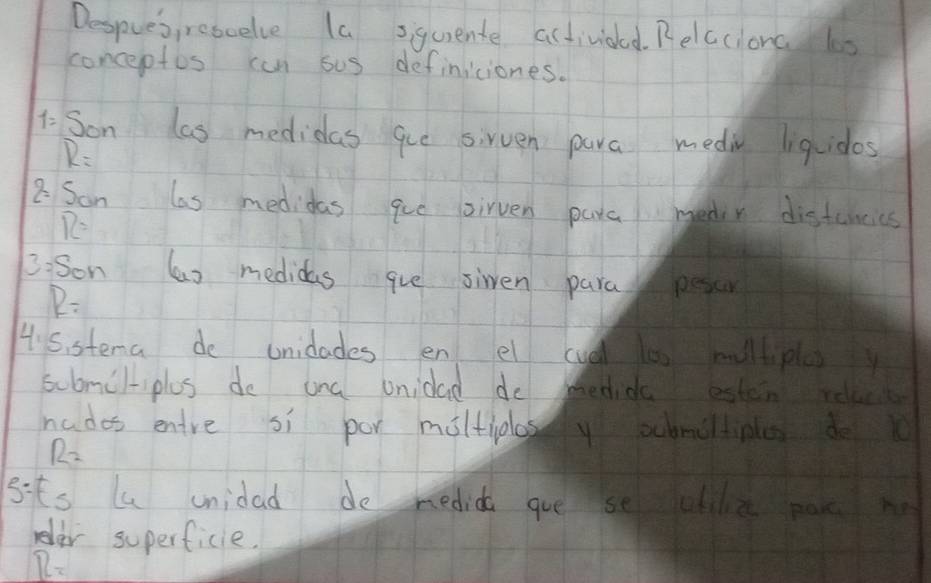 Después, resuelve la siguiente actividad. Relaciona los
conceptos con sus definiciones.
1= Son las medidas que sirven para medir liquidos
R=
2= Son las medidas que sirven para medir distancias
R=
3= Son las medidas que sirven para pesar
R=
4= Sistema de unidades en el cual los multiplos y
submúltiplos de una unidad de medida están relacio
nados entre sí por múltiplos y submúltiplos de 10
R=
5= Es la unidad de medida que se utiliza para me
dir superficie.
R=